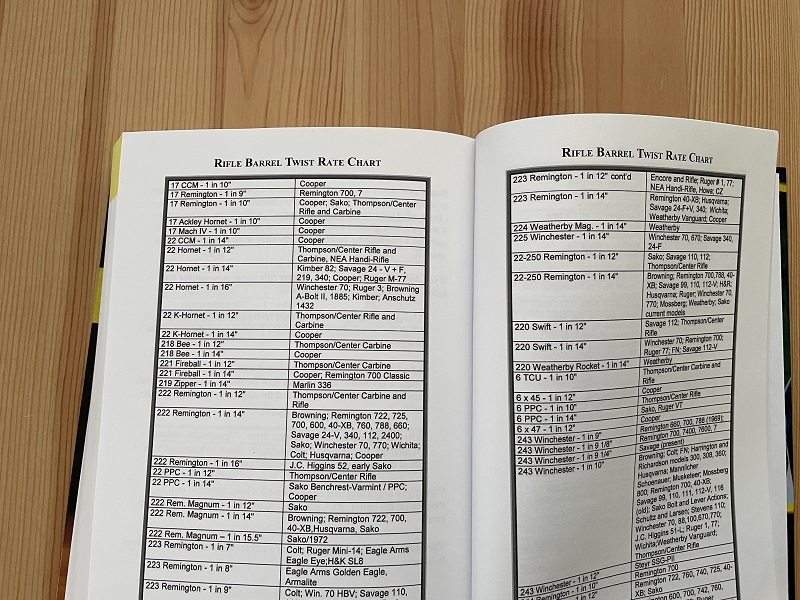 RIFLE BARREL TWIST RATE CHART
17 CCM - 1 in 10" Cooper
17 Remington - 1 in 9" Remington 700, 7
17 Remington - 1 in 10" Cooper; Sako; Thompson/Center
Rifle and Carbine
17 Ackley Hornet - 1 in 10" Cooper
17 Mach IV - 1 in 10" Cooper
22 CCM - 1 in 14" Cooper
22 Hornet - 1 in 12" Thompson/Center Rifle and
Carbine, NEA Handi-Rifle
22 Hornet - 1 in 14" Kimber 82; Savage 24 - V + F,
219, 340; Cooper; Ruger M-77
22 Hornet - 1 in 16" Winchester 70; Ruger 3; Browning
A-Bolt II, 1885; Kimber; Anschutz
1432
22 K-Hornet - 1 in 12" Thompson/Center Rifle and
Carbine
22 K-Hornet - 1 in 14" Cooper
218 Bee - 1 in 12" Thompson/Center Carbine
218 Bee - 1 in 14" Cooper
221 Fireball - 1 in 12" Thompson/Center Carbine
221 Fireball - 1 in 14" Cooper; Remington 700 Classic
219 Zipper - 1 in 14" Marlin 336
222 Remington - 1 in 12" Thompson/Center Carbine and
Rifle
222 Remington - 1 in 14" Browning; Remington 722, 725,
700, 600, 40-XB, 760, 788, 660;
Savage 24-V, 340, 112, 2400;
Sako; Winchester 70, 770; Wichita;
Colt; Husqvarna; Cooper
222 Remington - 1 in 16" J.C. Higgins 52, early Sako
22 PPC - 1 in 12" Thompson/Center Rifle
22 PPC - 1 in 14" Sako Benchrest-Varmint / PPC;
Cooper
222 Rem. Magnum - 1 in 12" Sako
222 Rem. Magnum - 1 in 14" Browning; Remington 722, 700,
40-XB,Husqvarna, Sako
222 Rem. Magnum – 1 in 15.5" Sako/1972
223 Remington - 1 in 7" Colt; Ruger Mini-14; Eagle Arms
Eagle Eye;H&K SL8
223 Remington - 1 in 8" Eagle Arms Golden Eagle,
Armalite
223 Remington - 1 in 9" Colt; Win. 70 HBV; Savage 110,
RIFLE BARREL TWIST RATE CHART
223 Remington - 1 in 12" cont'd Encore and Rifle; Ruger # 1, 77;
NEA Handi-Rifle, Howa; CZ
223 Remington - 1 in 14" Remington 40-XB; Husqvarna;
Savage 24-F+V, 340; Wichita,
Weatherby Vanguard; Cooper
224 Weatherby Mag. - 1 in 14" Weatherby
225 Winchester - 1 in 14" Winchester 70, 670; Savage 340,
24-F
22-250 Remington - 1 in 12" Sako; Savage 110, 112;
Thompson/Center Rifle
22-250 Remington - 1 in 14" Browning; Remington700,788, 40-
XB; Savage 99, 110, 112-V; H&R;
Husqvarna; Ruger; Winchester 70,
770; Mossberg; Weatherby; Sako
current models
220 Swift - 1 in 12" Savage 112; Thompson/Center
Rifle
220 Swift - 1 in 14" Winchester 70; Remington 700;
Ruger 77; FN; Savage 112-V
220 Weatherby Rocket - 1 in 14" Weatherby
6 TCU - 1 in 10" Thompson/Center Carbine and
Rifle
6 x 45 - 1 in 12" Cooper
6 PPC - 1 in 10" Thompson/Center Rifle
6 PPC - 1 in 14" Sako, Ruger VT
6 x 47 - 1 in 12" Cooper
243 Winchester - 1 in 9" Remington 660, 700, 788 (1969);
243 Winchester - 1 in 9 1/8" Remington 700, 7400, 7600, 7
243 Winchester - 1 in 9 1/4" Savage (present)
243 Winchester - 1 in 10" Browning; Colt; FN; Harrington and
Richardson models 300, 308, 360;
Husqvarna; Mannlicher
Schoenauer; Musketeer; Mossberg
800; Remington 700, 40-XB;
Savage 99, 110, 111, 112-V, 116
(old); Sako Bolt and Lever Actions;
Schultz and Larsen; Stevens 110;
Winchester 70, 88,100,670,770;
J.C. Higgins 51-L; Ruger 1, 77;
Wichita;Weatherby Vanguard;
Thompson/Center Rifle
Steyr SSG-PII
243 Winchester - 1 in 12" Remington 700
Remington - 1 in 9" Remington 722, 760, 740, 725, 40-
XB; Sako
600, 700, 742, 760,